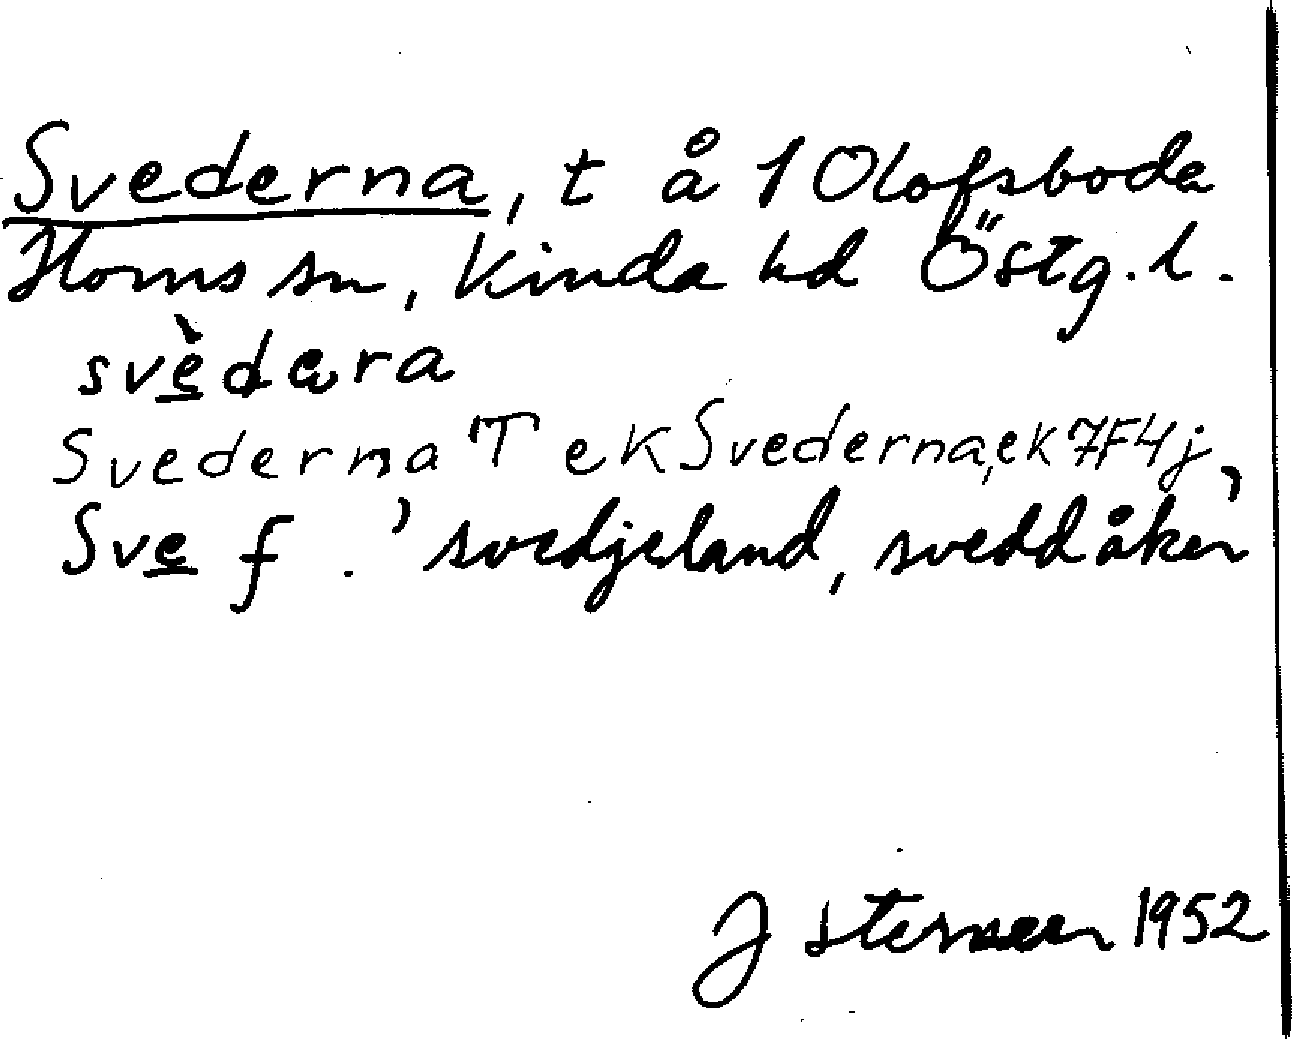 Svederna, t å 1 Olofsboda
Horns sn, Kinda hd Östg. l.
svè̱dæra
Svederna 'T ek Svederna, ek 7F4j
Sve̱ f. 'svedjeland, sveddåker'
J 1952